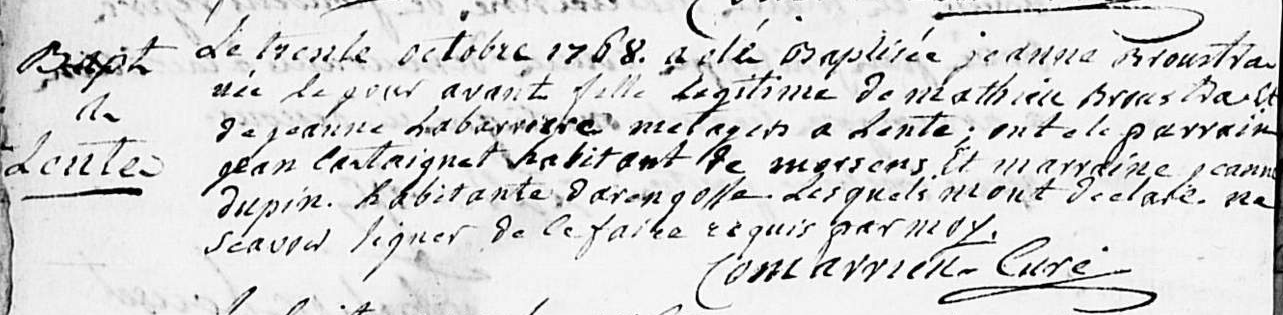 Bapt
de
Lente
Le trente octobre 1768. a été Baptisée jeanne Broustra
née le jour avant fille Legitime de mathieu Broustra Et
de jeanne Labarriere metayers a Lente; ont ete parrain
jean Castaignet habitant de morsens Et marraine jeanne
dupin. habitante darengosse. Lesquels mont declaré ne
scavoir signer de ce faire requis par moy.
Comarrieu Curé